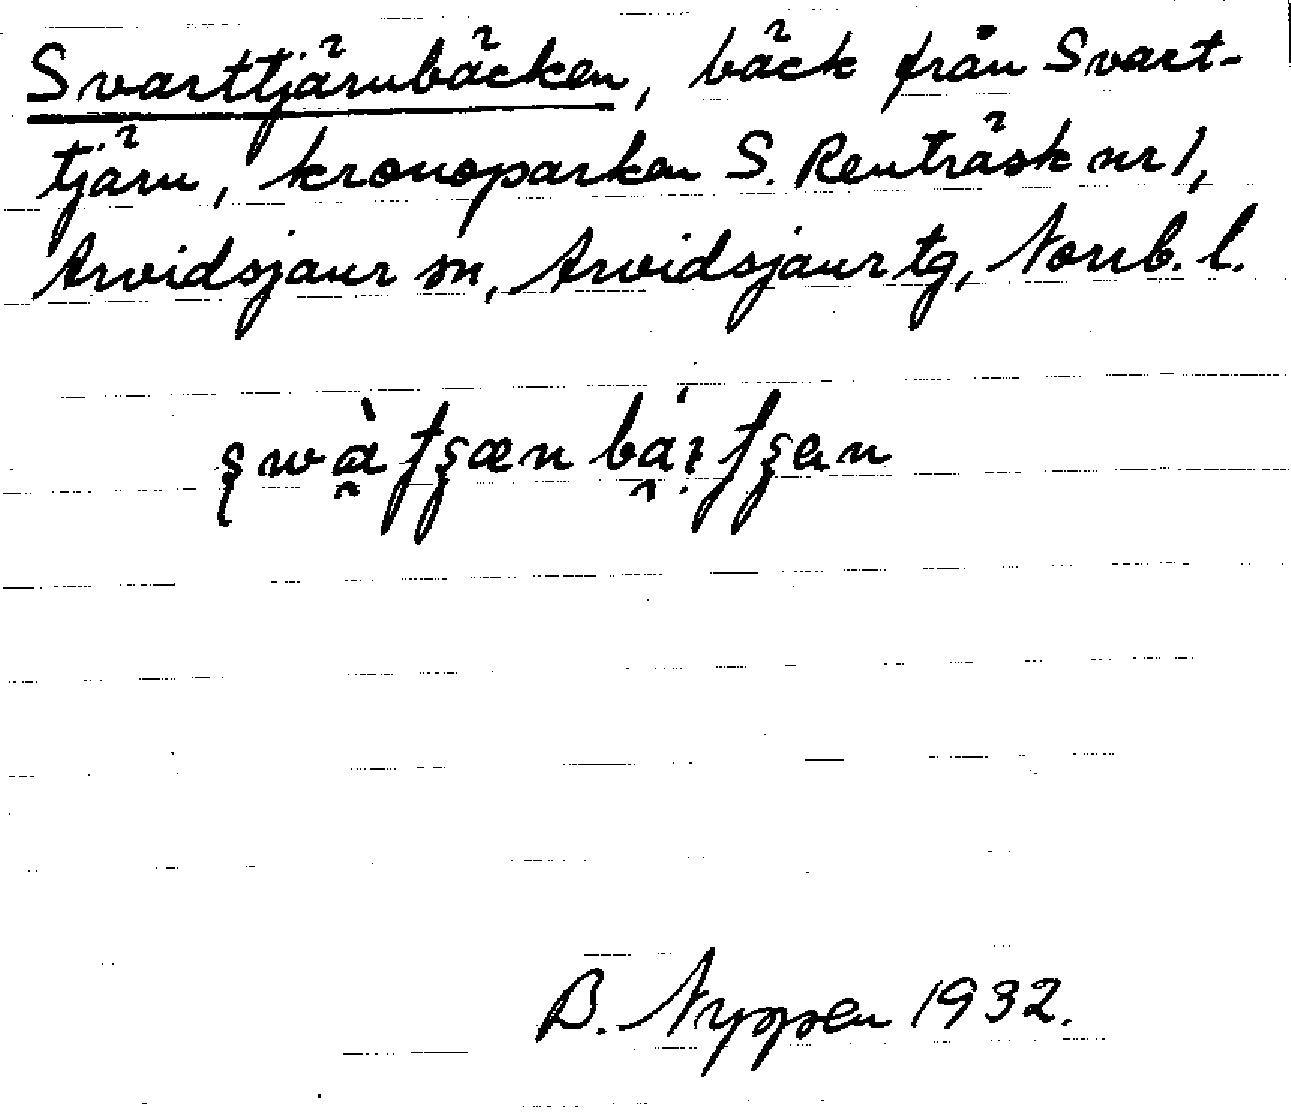 Svarttjärnbäcken, bäck från Svart-
tjärn, kronoparken S. Renträsk nr 1,
Arvidsjaur sn, Arvidsjaur tg, Norrb. l.
B. Nyppen 1932.